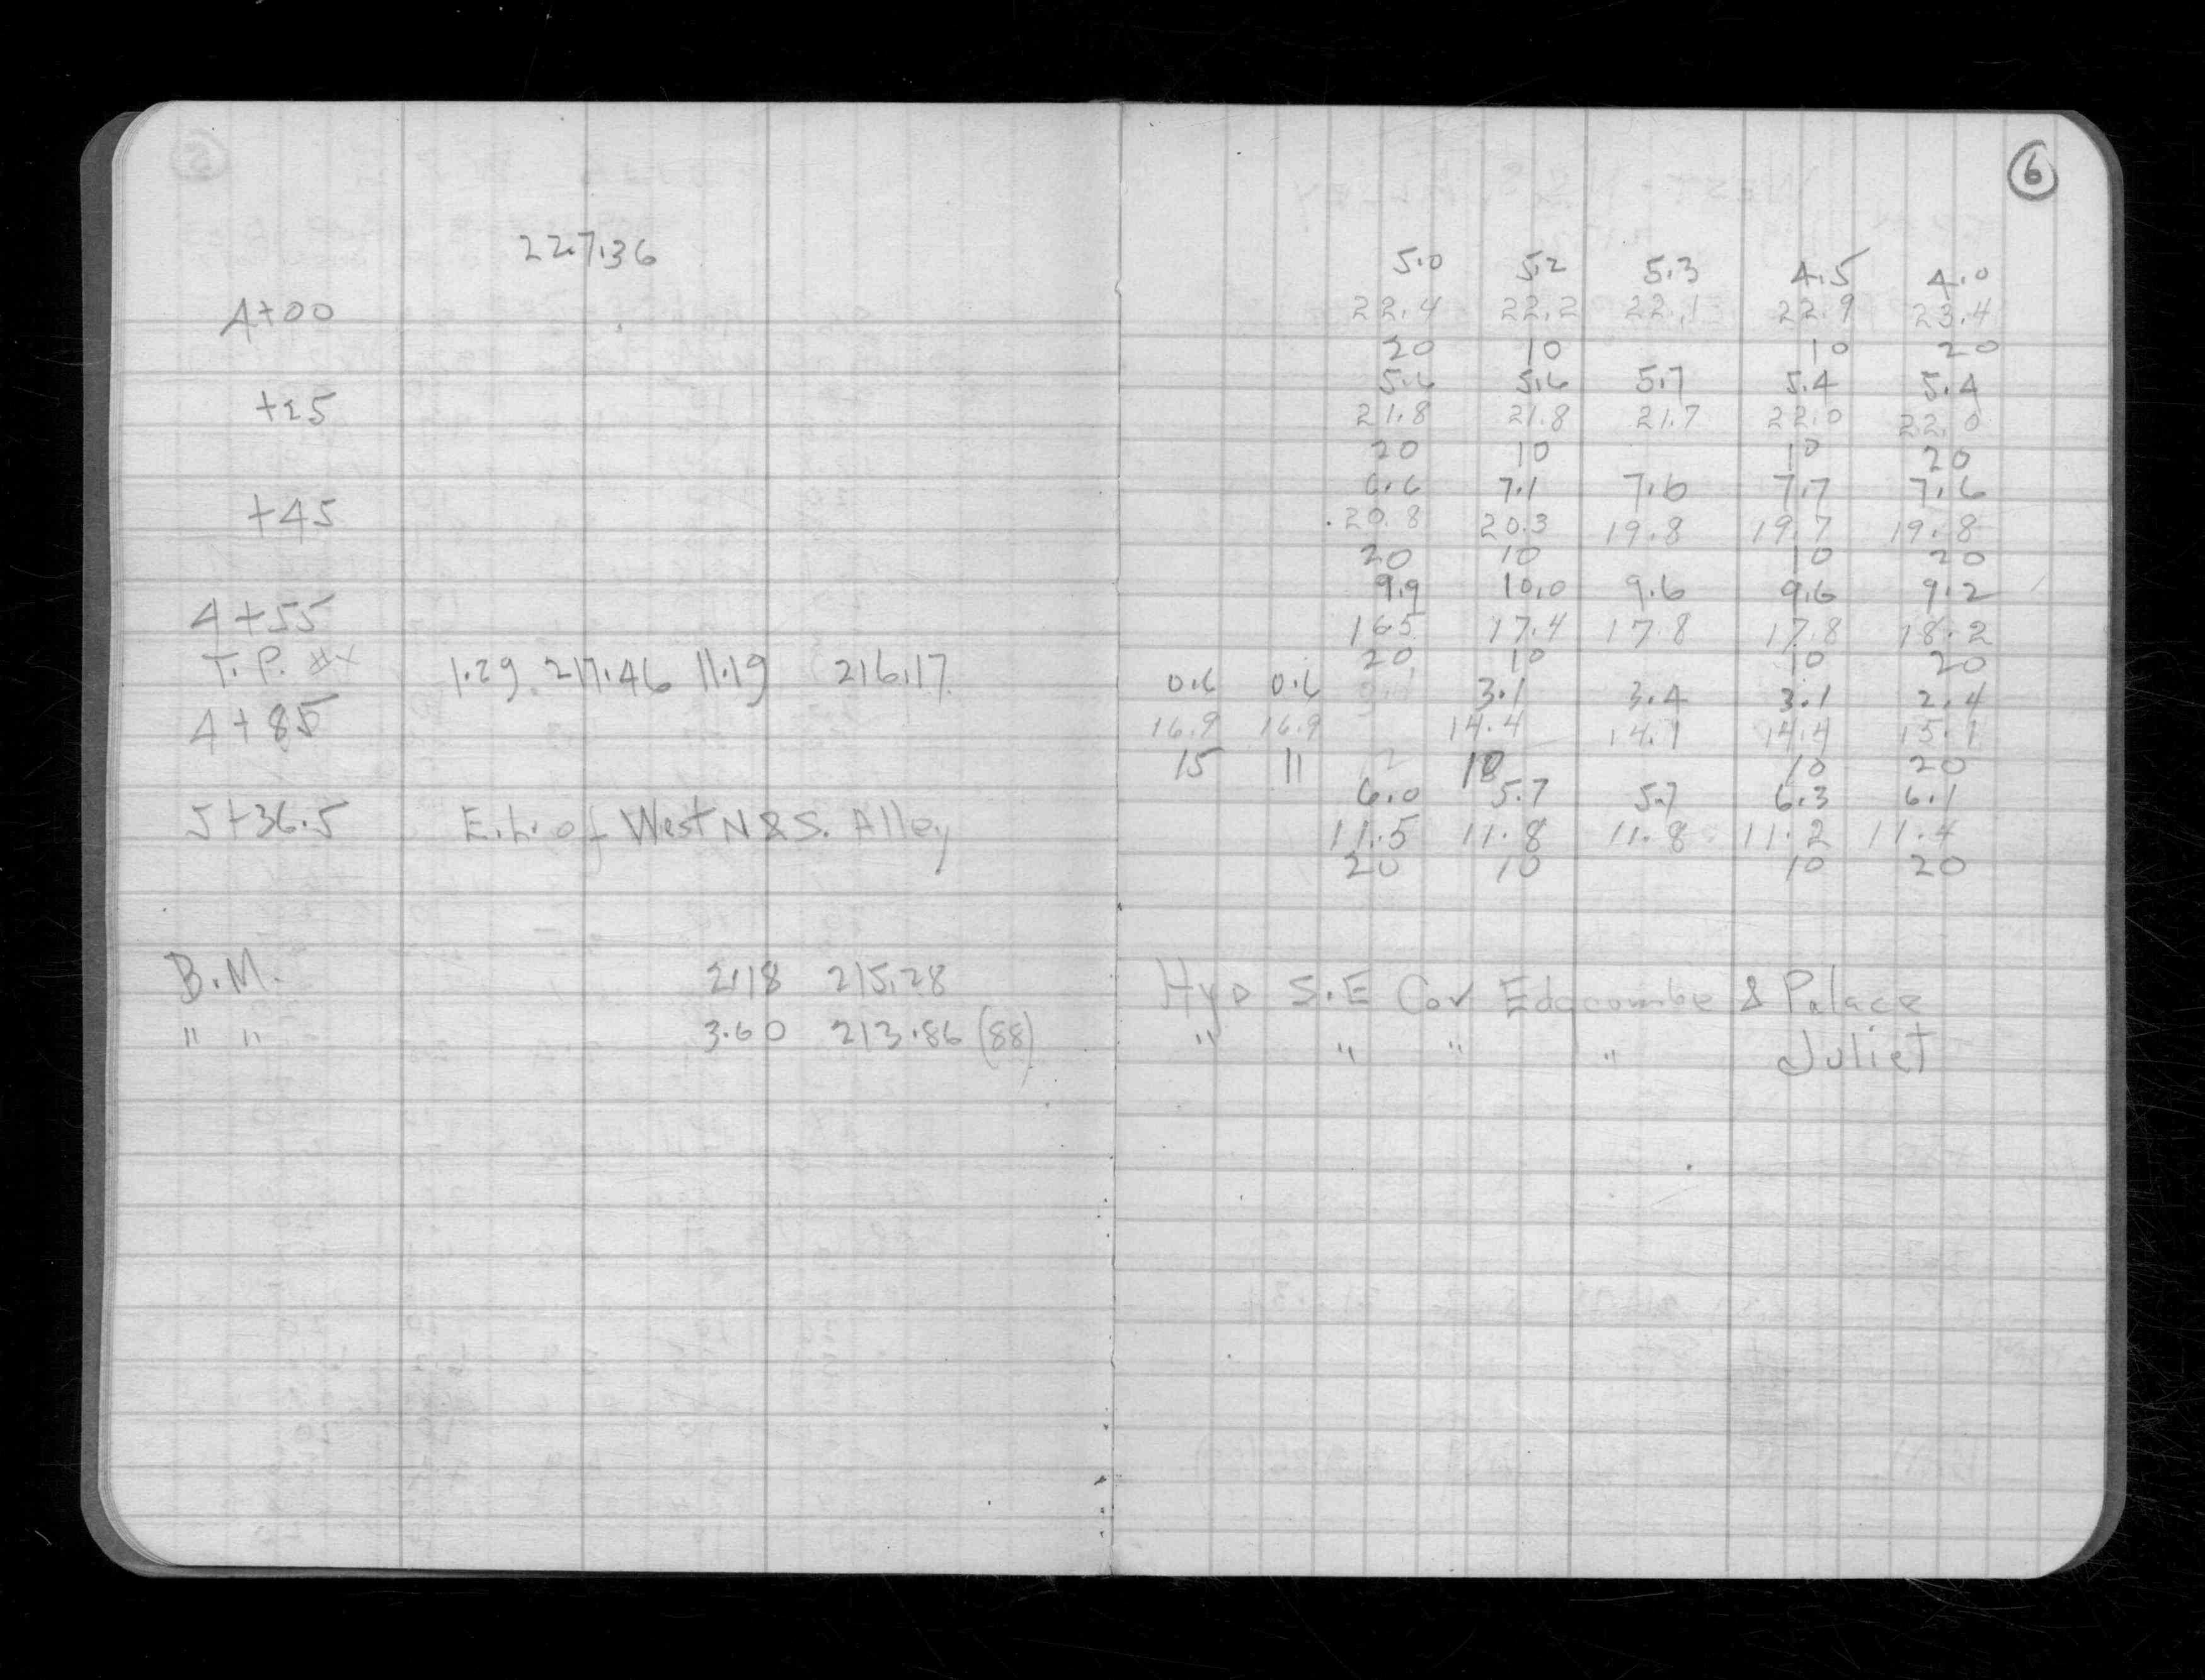 6
227.36
5.0 5.2 5.3 4.5 4.0
4+00 22.4 22.2 22.1 22.9 23.4
20 10 10 20
5.6 5.6 5.7 5.4 5.4
+25 21.8 21.8 21.7 22.0 22.0
20 10 10 20
6.6 7.1 7.6 7.7 7.6
+45 20.8 20.3 19.8 19.7 19.8
20 10 10 20
9.9 10.0 9.6 9.6 9.2
4+55 16.5 17.4 17.8 17.8 18.2
20 10 10 20
T.P. 1.29 217.46 11.19 216.17
0.6 0.6 3.1 3.4 3.1 2.4
4+85 16.9 16.9 14.4 14.1 14.4 15.1
15 11 10 10 20
6.0 5.7 5.7 6.3 6.1
5+36.5 E.L. of West N & S. Alley 11.5 11.8 11.8 11.2 11.4
20 10 10 20
B.M. 2.18 215.28 Hyd S.E Cor Edgcombe & Palace
" " 3.60 213.86 (88) " " " " Juliet